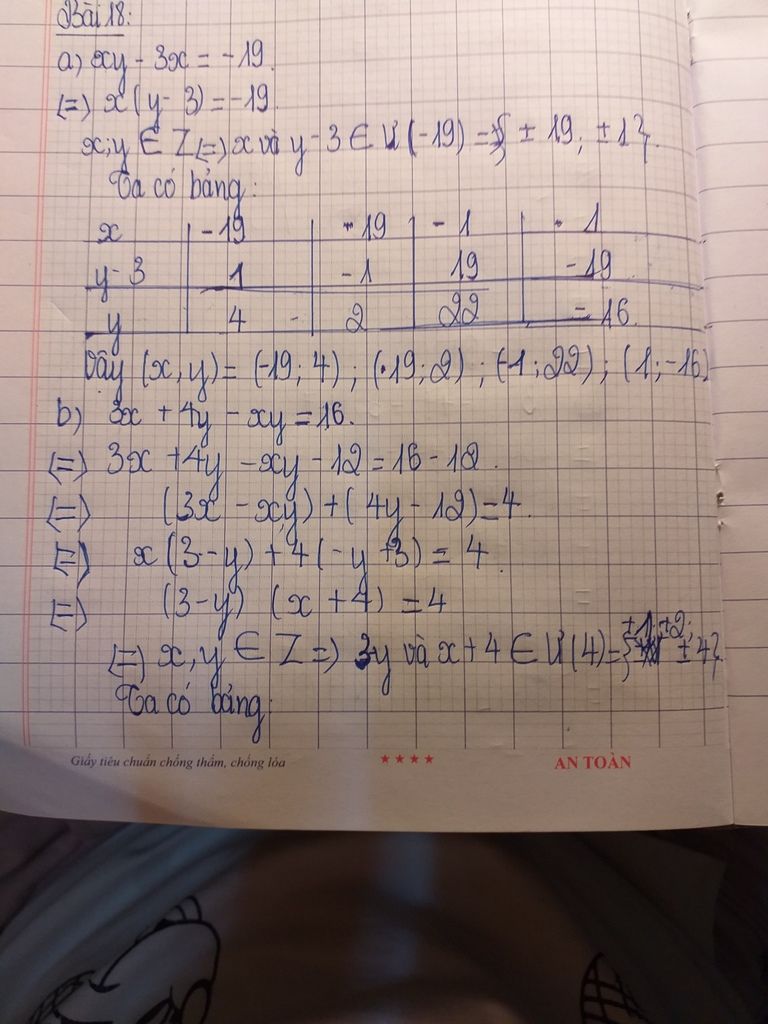 Bài 18:
a) xy - 3x = -19.
(=) x(y-3) = -19.
x;y ∈ Z (=) x và y-3 ∈ Ư(-19) = { ± 19; ±1}.
Ta có bảng:
x | -19 | 19 | -1 | 1
y-3 | 1 | -1 | 19 | -19
y | 4 | 2 | 22 | -16
Vậy (x,y) = (-19; 4) ; (19;2) ; (-1;22) ; (1;-16)
b) 3x + 4y - xy = 16.
(=) 3x + 4y - xy - 12 = 16 - 12.
(=) (3x - xy) + (4y - 12) = 4.
(=) x(3-y) + 4(-y+3) = 4
(=) (3-y) (x+4) = 4
(=) x,y ∈ Z =) 3-y và x+4 ∈ Ư(4) = {±1 ±2; ±4}
Ta có bảng:
Giấy tiêu chuẩn chống thấm, chống lóa ★★★★ AN TOÀN